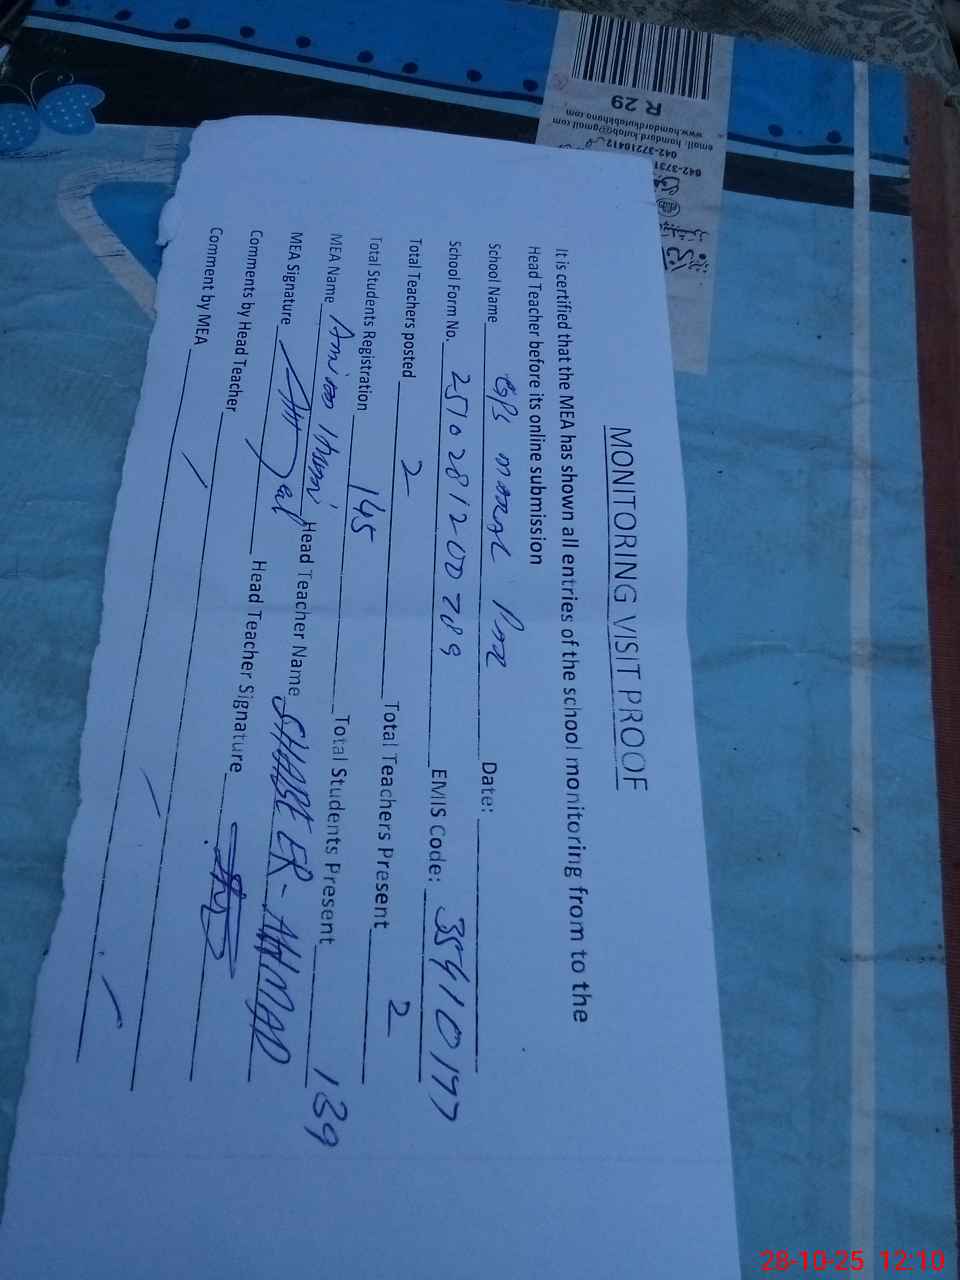 MONITORING VISIT PROOF
It is certified that the MEA has shown all entries of the school monitoring from to the
Head Teacher before its online submission
School Name GPS Date:
School Form No. 2510281200789 EMIS Code: 35410177
Total Teachers posted 2 Total Teachers Present 2
Total Students Registration 145 Total Students Present 139
MEA Name Head Teacher Name SHABEER-AHMAD
MEA Signature Head Teacher Signature
Comments by Head Teacher
Comment by MEA
R 29
email: hamdard.kutab@gmail.com
www.hamdardkutabkhana.com
042-37210412
042-3731
28-10-25 12:10